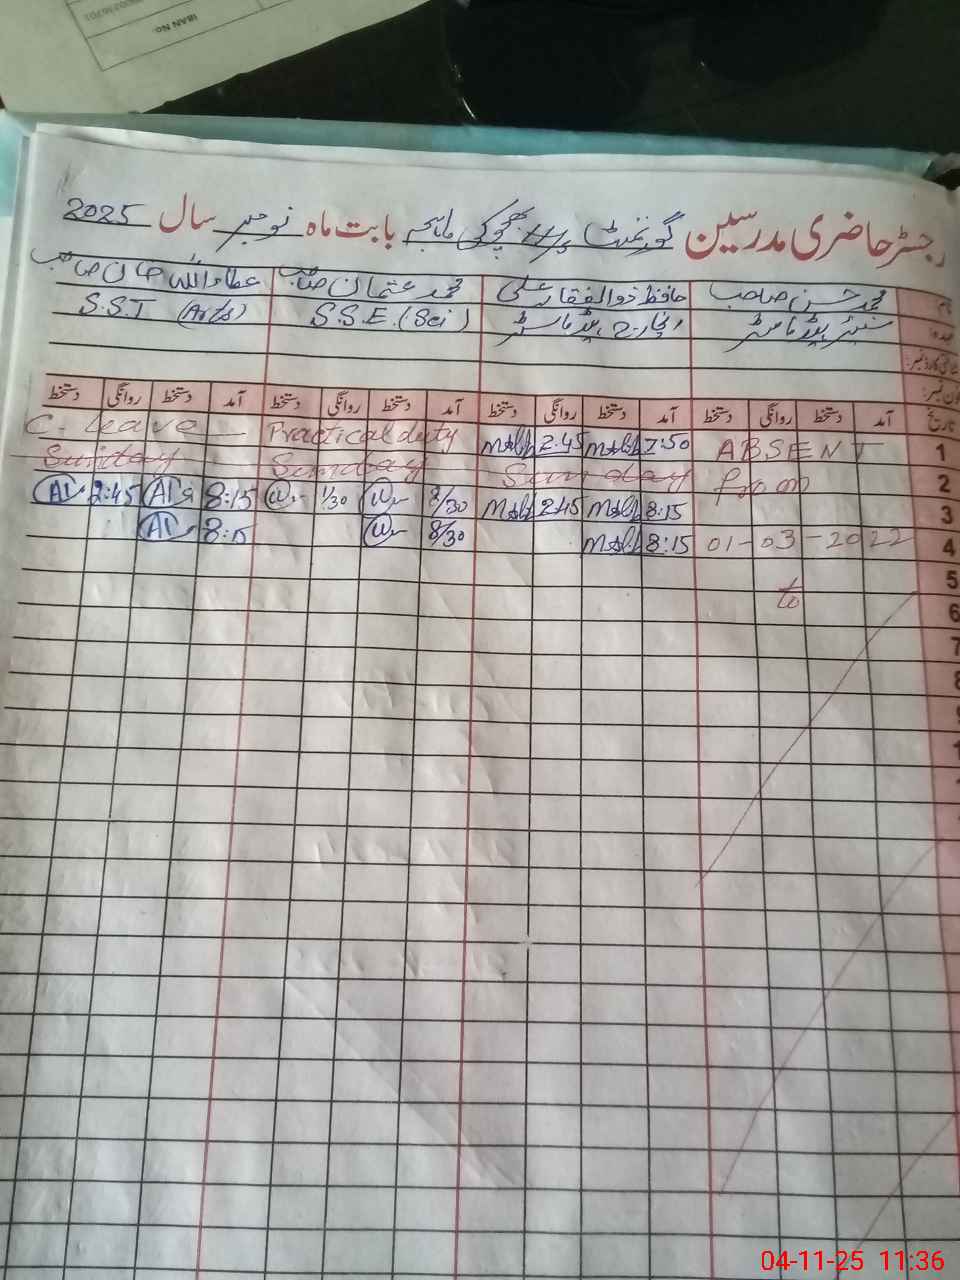 IBAN No.
رجسٹر حاضری مدرسین گورنمنٹ بابت ماہ نومبر سال 2025
نام محمد حسن صاحب حافظ ذوالفقار علی محمد عثمان صاحب عطاء اللہ خان صاحب
عہدہ: سنیئر ہیڈ ماسٹر انچارج ہیڈ ماسٹر S.S.E. (Sci) S.S.T (Arts)
شناختی کارڈ نمبر:
فون نمبر:
تاریخ آمد دستخط روانگی دستخط آمد دستخط روانگی دستخط آمد دستخط روانگی دستخط آمد دستخط روانگی دستخط
C. Leave Practical duty 2:45 7:50 ABSENT 1
Sunday Sunday Sunday from 2
2:45 8:15 1/30 8/30 2:45 8:15 3
8:15 8/30 8:15 01-03-2022 4
5
to 6
7
8
04-11-25 11:36